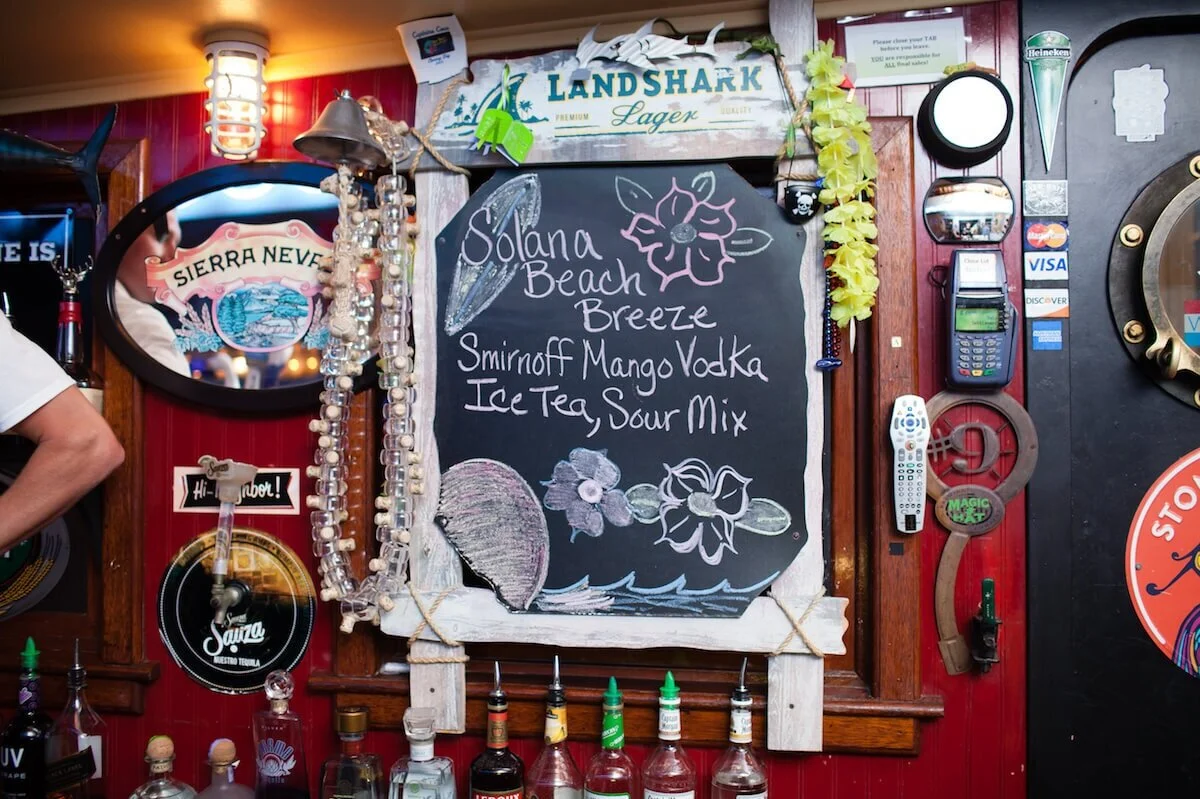 LANDSHARK
PREMIUM Lager QUALITY
Please close your TAB
before you leave.
YOU are responsible for
ALL final sales!
Heineken
NE IS
SIERRA NEVA
Solana
Beach
Breeze
Smirnoff Mango Vodka
Ice Tea, Sour Mix
VISA
DISCOVER
#9
MAGIC
HAT
Hi-Neighbor!
Sauza
NUESTRO TEQUILA
STO
UV
LEROUX